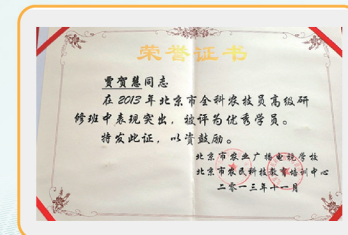 荣誉证书
贾贺慧同志
在2013年北京市全科农技员高级研
修班中表现突出，被评为优秀学员。
特发此证，以资鼓励。
北京市农业广播电视学校
北京市农民科技教育培训中心
二零一三年十一月